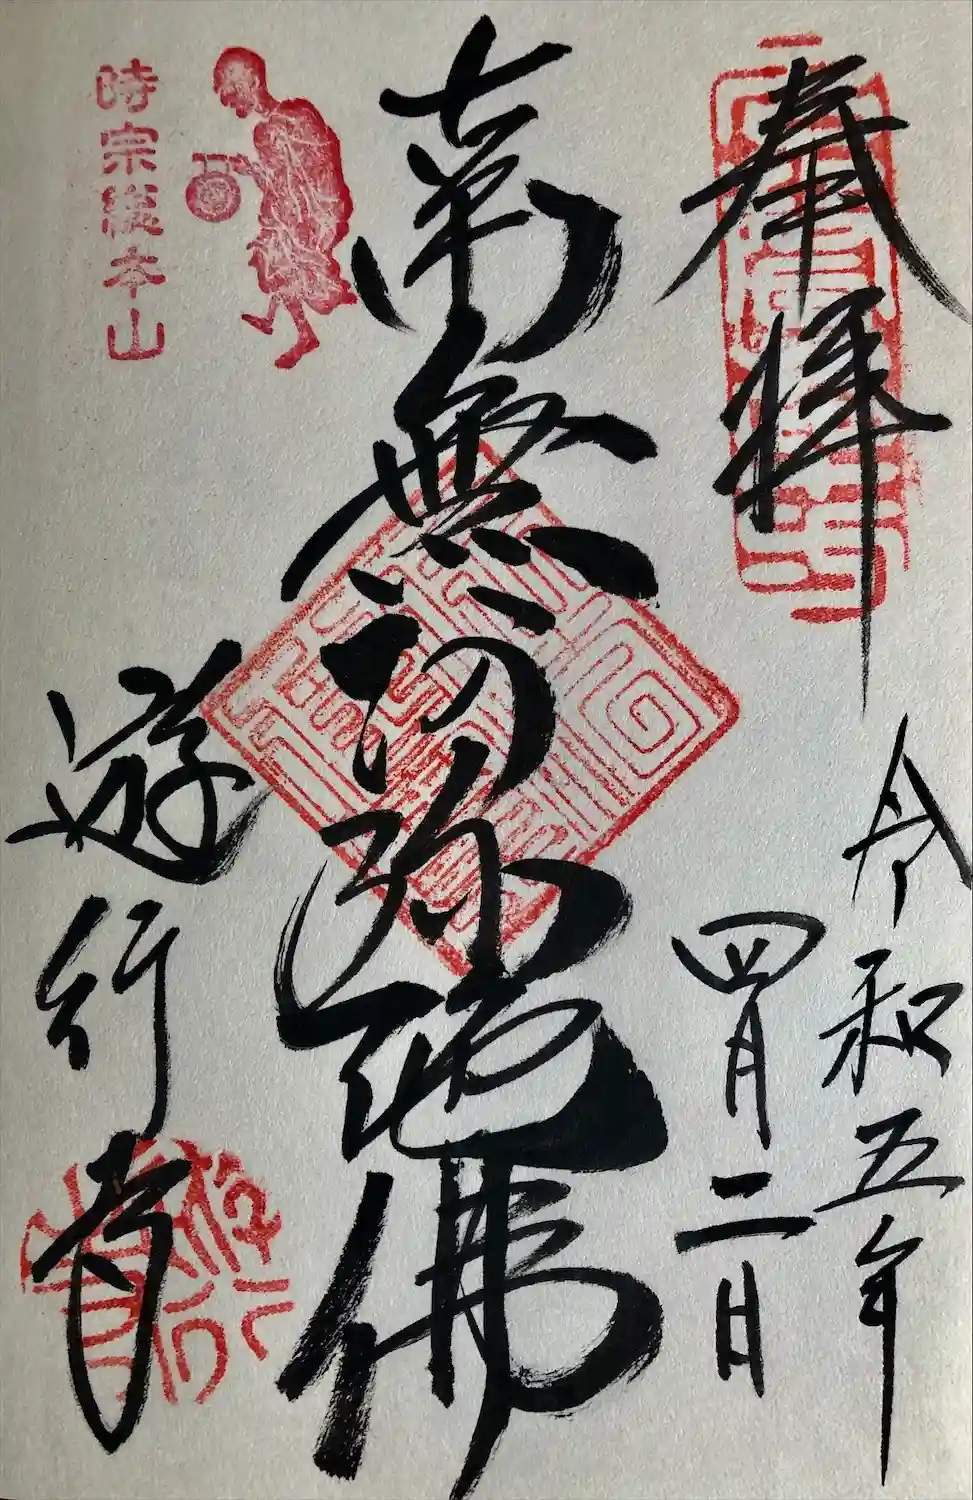 奉拝
令和五年
四月二日
南無阿弥陀佛
時宗総本山
遊行寺